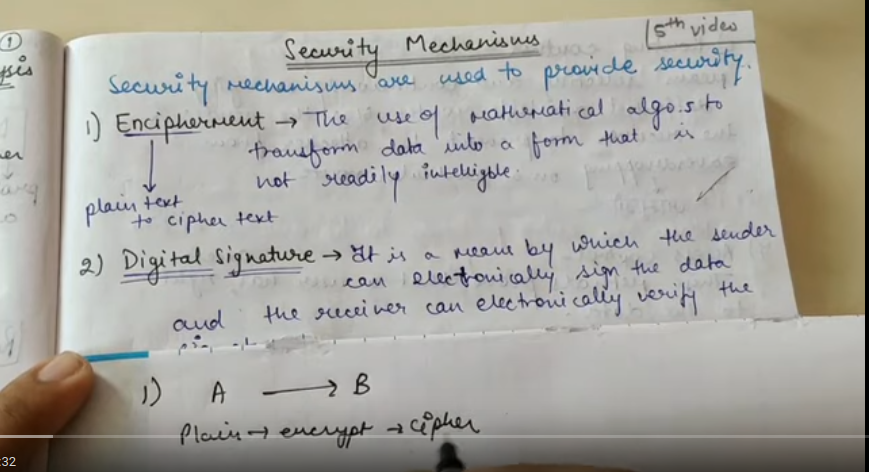 Security Mechanisms
5th video
Security mechanisms are used to provide security.
1) Encipherment → The use of mathematical algo.s to
transform data into a form that is
not readily intelligble.
plain text
to cipher text
2) Digital signature → It is a means by which the sender
can electronically sign the data
and the receiver can electronically verify the
1) A → B
Plain → encrypt → cipher
:32